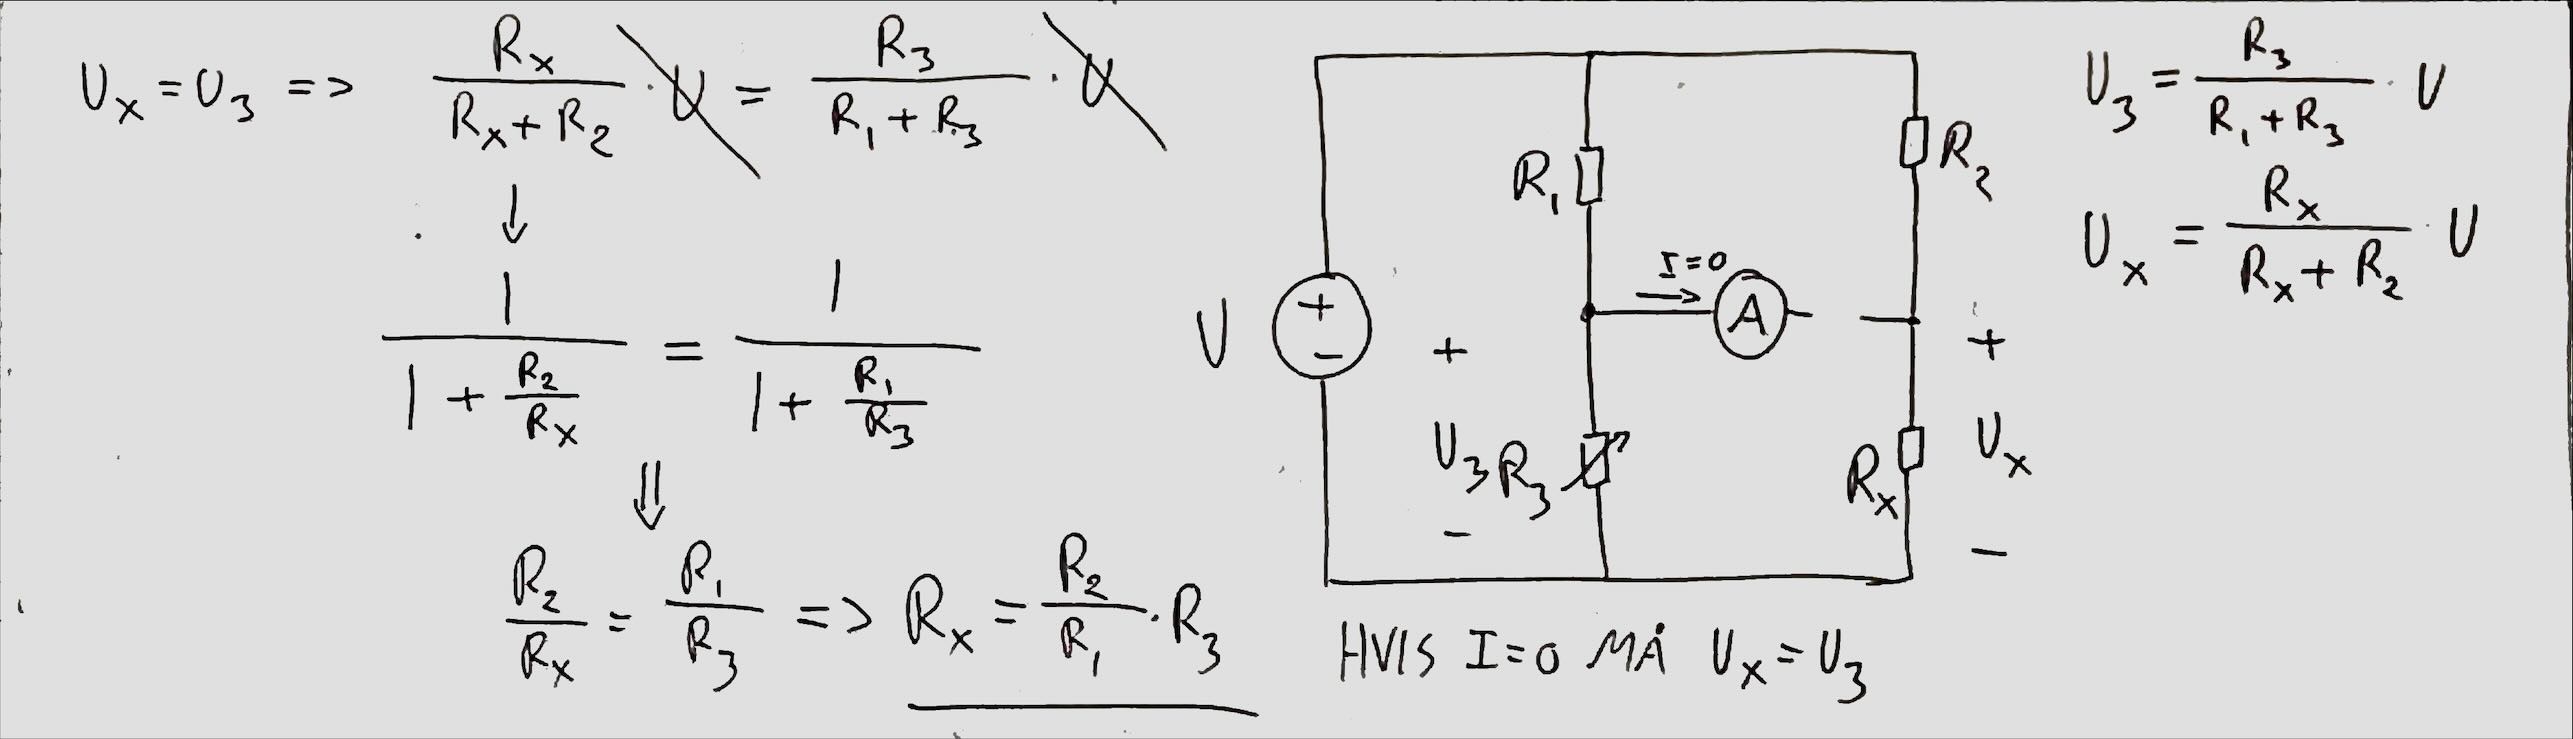 U_x = U_3 => R_x / (R_x + R_2) · U = R_3 / (R_1 + R_3) · U
↓
1 / (1 + R_2/R_x) = 1 / (1 + R_1/R_3)
⇓
R_2/R_x = R_1/R_3 => R_x = R_2/R_1 · R_3
U
+
-
R_1
R_2
I=0
→
A
+
U_3
-
R_3
R_x
+
U_x
-
HVIS I=0 MÅ U_x = U_3
U_3 = R_3 / (R_1 + R_3) · U
U_x = R_x / (R_x + R_2) · U